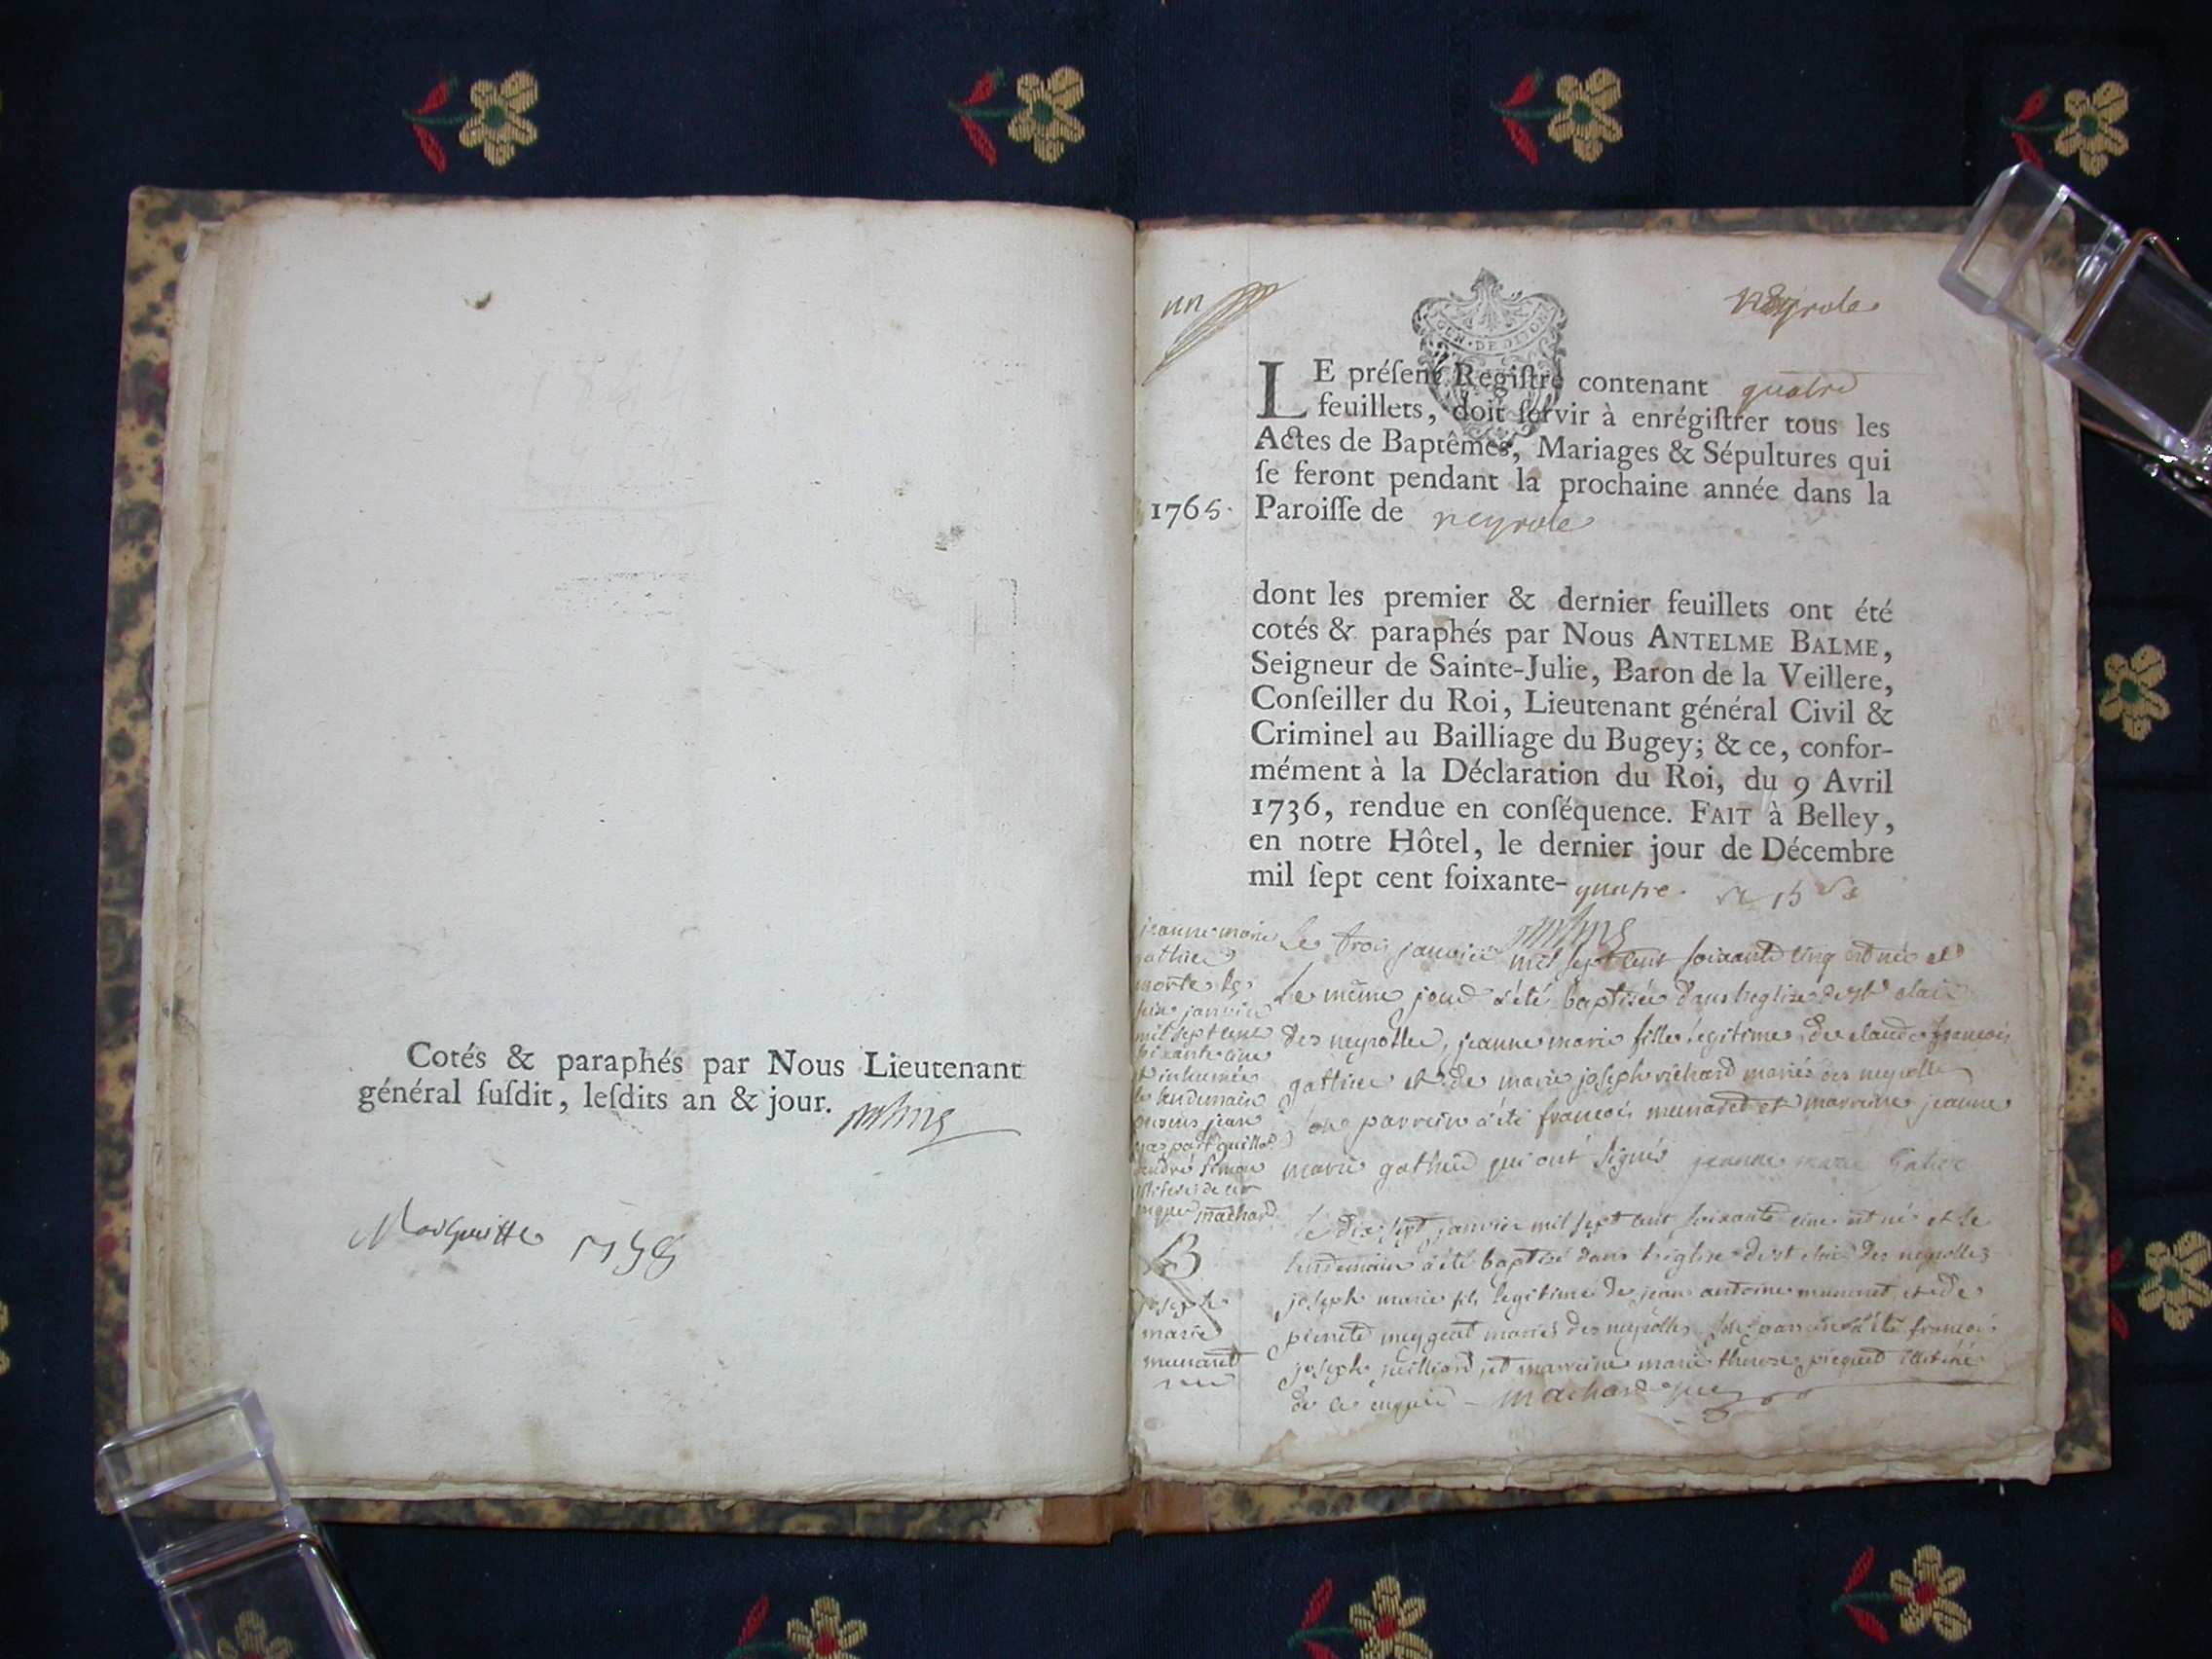 Cotés & paraphés par Nous Lieutenant
général ſuſdit, leſdits an & jour.
un
GEN. DE DIJON
Neyrole
LE préſent Regiſtre contenant quatre
feuillets, doit ſervir à enrégiſtrer tous les
Actes de Baptêmes, Mariages & Sépultures qui
ſe feront pendant la prochaine année dans la
1765. Paroiſſe de neyrole
dont les premier & dernier feuillets ont été
cotés & paraphés par Nous ANTELME BALME,
Seigneur de Sainte-Julie, Baron de la Veillere,
Conſeiller du Roi, Lieutenant général Civil &
Criminel au Bailliage du Bugey; & ce, confor-
mément à la Déclaration du Roi, du 9 Avril
1736, rendue en conſéquence. FAIT à Belley,
en notre Hôtel, le dernier jour de Décembre
mil ſept cent ſoixante-quatre.
jeanne marie
gathier
morte le
janvier
mil sept cent
soixante cinq
et inhumée
le lendemain
presens jean
gaspard guillot
andré simon
illiterés de ce
enquis machard
le trois janvier mil sept cent soixante cinq est née et
le même jour a été baptisée dans l'eglise de st clair
des neyrolles, jeanne marie fille legitime de claude françois
gathier et de marie joseph richard mariés des neyrolles
son parrein a été françois munaret et marreine jeanne
marie gathier qui ont signés jeanne marie Gatier
B
joseph
marie
munaret
le dix sept janvier mil sept cent soixante cinq est né et le
lendemain a été baptisé dans l'eglise de st clair des neyrolles
joseph marie fils legitime de jean antoine munaret et de
pierrette meygret mariés des neyrolles son parrein a été françois
joseph juilliard, et marreine marie therese piquet illiterés
de ce enquis - machard curé